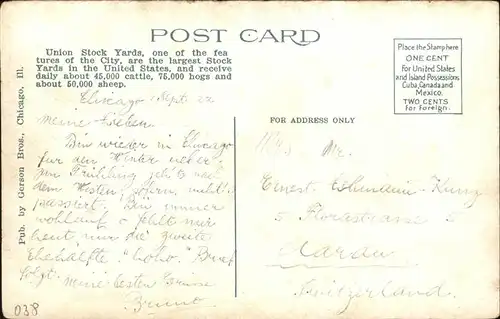 POST CARD
Union Stock Yards, one of the fea
tures of the City, are the largest Stock
Yards in the United States, and receive
daily about 45,000 cattle, 75,000 hogs and
about 50,000 sheep.
Pub. by Gerson Bros., Chicago, Ill.
Place the Stamp here
ONE CENT
For United States
and Island Possessions
Cuba, Canada and
Mexico.
TWO CENTS
for Foreign.
FOR ADDRESS ONLY
Chicago Sept. 22
Meine Lieben
Bin wieder in Chicago
für den Winter
Frühling
dem Westen, sofern nichts
passiert. Bin immer
wohlauf & fehlt mir
heut nur die zweite
Ehehälfte "hoho". Brief
folgt. Meine besten Grüsse
Bruno
Mr.
Ernest
5 Florastrasse 5
Aarau
Switzerland.
038